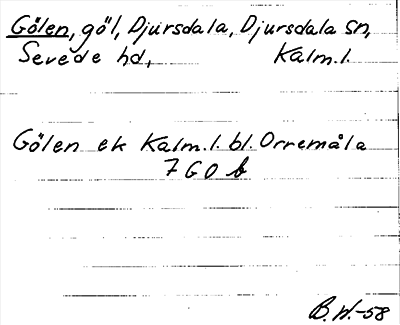 Gölen, göl, Djursdala, Djursdala sn,
Sevede hd, Kalm.l.
Gölen ek Kalm.l. bl. Orremåla
7 G O b
B.W.-58